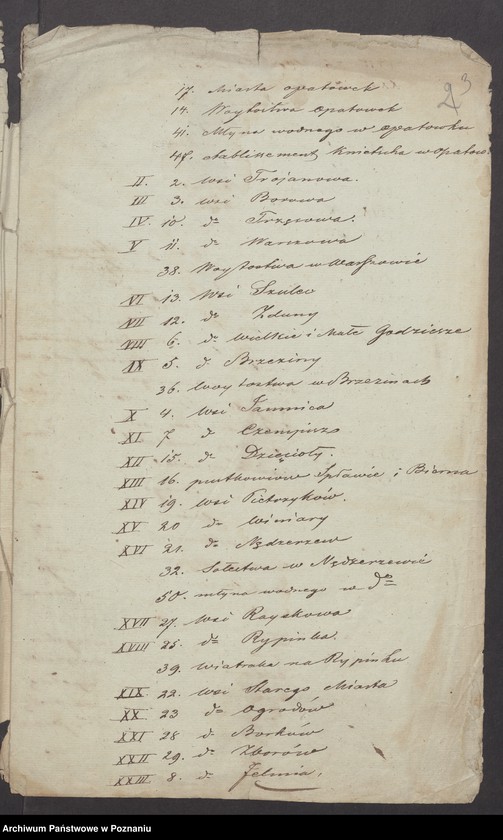 2 3
17. Miasta Opatówek
14. Woytostwa Opatowek
41. Młyna wodnego w Opatowku
48. etablissement w Opatow.
II. 2. Wsi Trojanowa.
III 3. wsi Borowa
IV. 10. do
V 11. do Warszowa
38. Woytostwa w Warszowie
VI 13. Wsi Szulec
VII 12. do Zduny
VIII 6. do Wielkie i Małe Godziesze
IX 5. do Brzeziny
36. woytostwa w Brzezinach
X 4. wsi Jamnica
XI 7 do Czempisz
XII 15. do Dzięcioły.
XIII 16. pustkowiow Spławie i Bierna
XIV 19. wsi Pietrzyków.
XV 20 do Winiary
XVI 21. do Nędzerzew
32. Solectwa w Nędzerzewie
50. młyna wodnego w do
XVII 27. wsi Rayskowa
XVIII 25. do Rypinka.
39. wiatraka na Rypinku
XIX 22. wsi Starego Miasta
XX 23 do Ogrodów
XXI 28 do Borków
XXII 29. do Zborów
XXIII 8. do Jelmia.
Archiwum Państwowe w Poznaniu